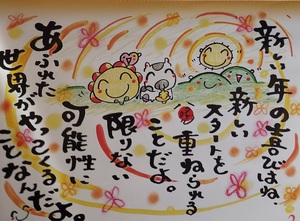 新しい年の喜びはね、
新しい
スタートを
重ねられる
ことだよ。
限りない
可能性に
あふれた
世界がやってくる
ことなんだよ。